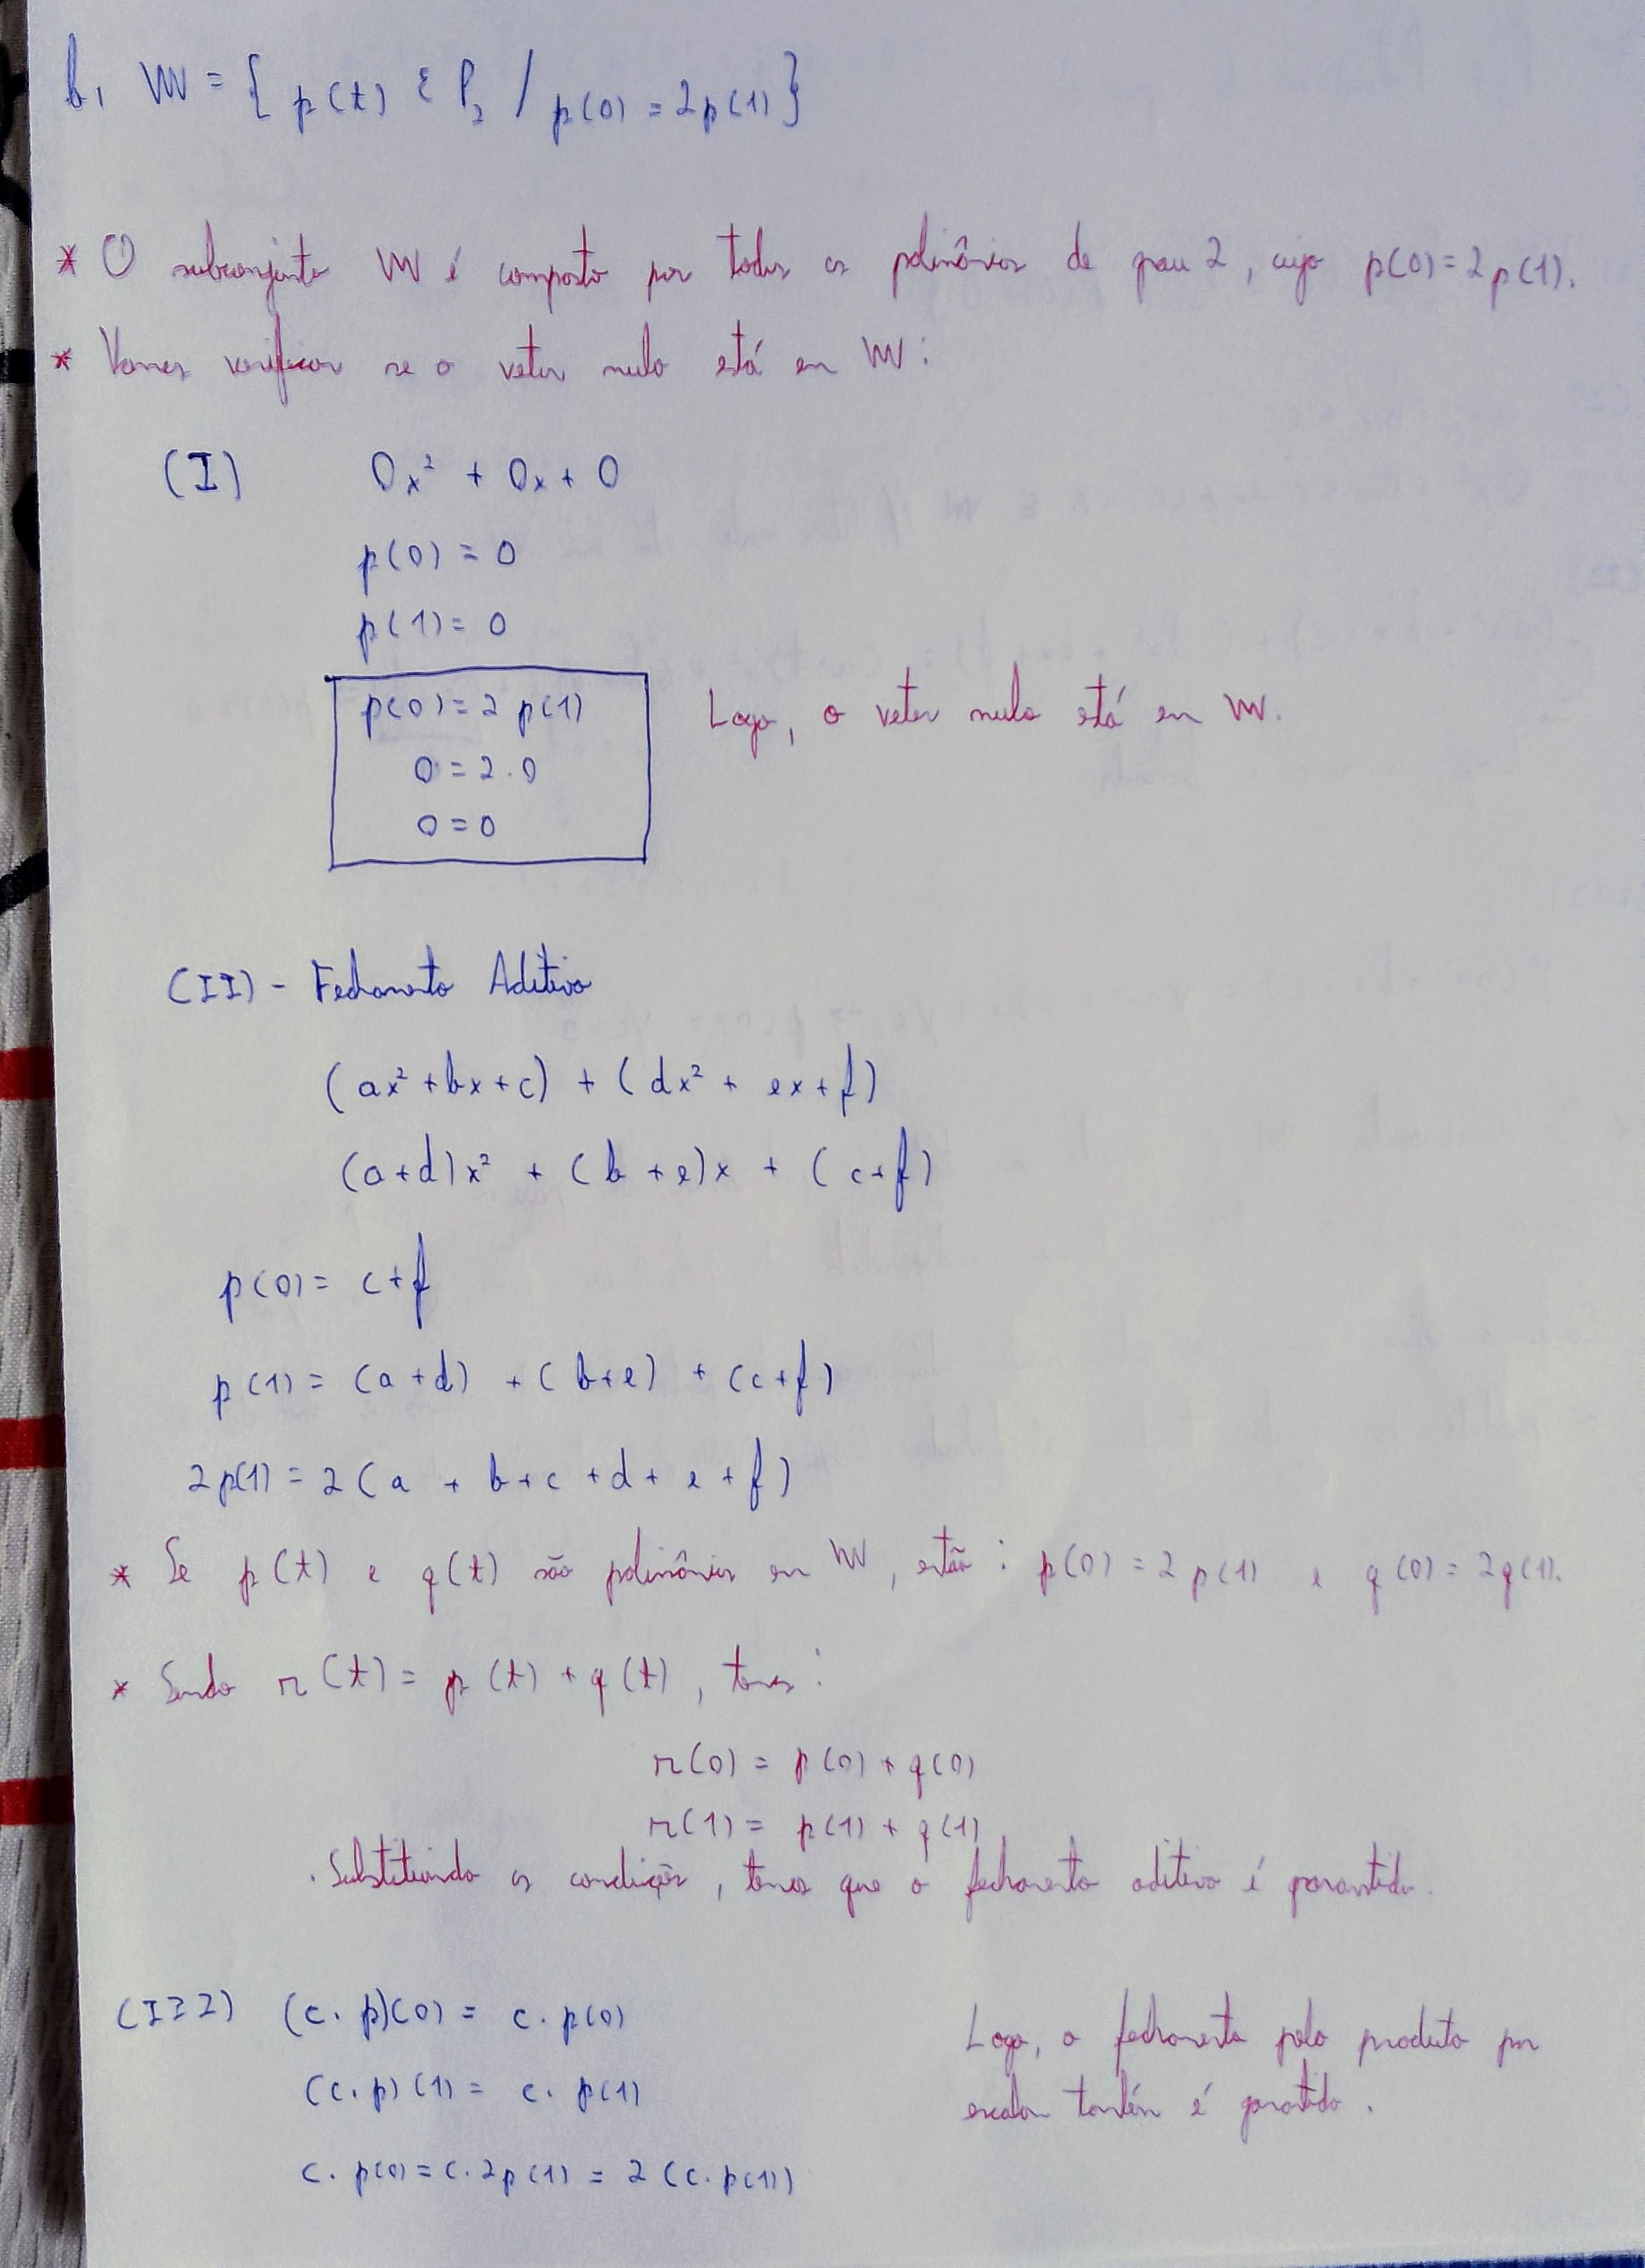 b, W = { p(t) ε P₂ / p(0) = 2p(1)}
* O subconjunto W é composto por todos os polinômios de grau 2, cujo p(0) = 2p(1).
* Vamos verificar se o vetor nulo está em W:
(I) 0x² + 0x + 0
p(0) = 0
p(1) = 0
p(0) = 2 p(1)
0 = 2.0
0 = 0
Logo, o vetor nulo está em W.
(II) - Fechamento Aditivo
(ax² + bx + c) + (dx² + ex + f)
(a+d)x² + (b+e)x + (c+f)
p(0) = c+f
p(1) = (a+d) + (b+e) + (c+f)
2p(1) = 2(a + b + c + d + e + f)
* Se p(t) e q(t) são polinômios em W, então: p(0) = 2p(1) e q(0) = 2q(1).
* Sendo r(t) = p(t) + q(t), temos:
r(0) = p(0) + q(0)
r(1) = p(1) + q(1)
. Substituindo as condições, temos que o fechamento aditivo é garantido.
(III) (c. p)(0) = c. p(0)
(c. p)(1) = c. p(1)
c. p(0) = c. 2p(1) = 2(c. p(1))
Logo, o fechamento pelo produto por
escalar também é garantido.